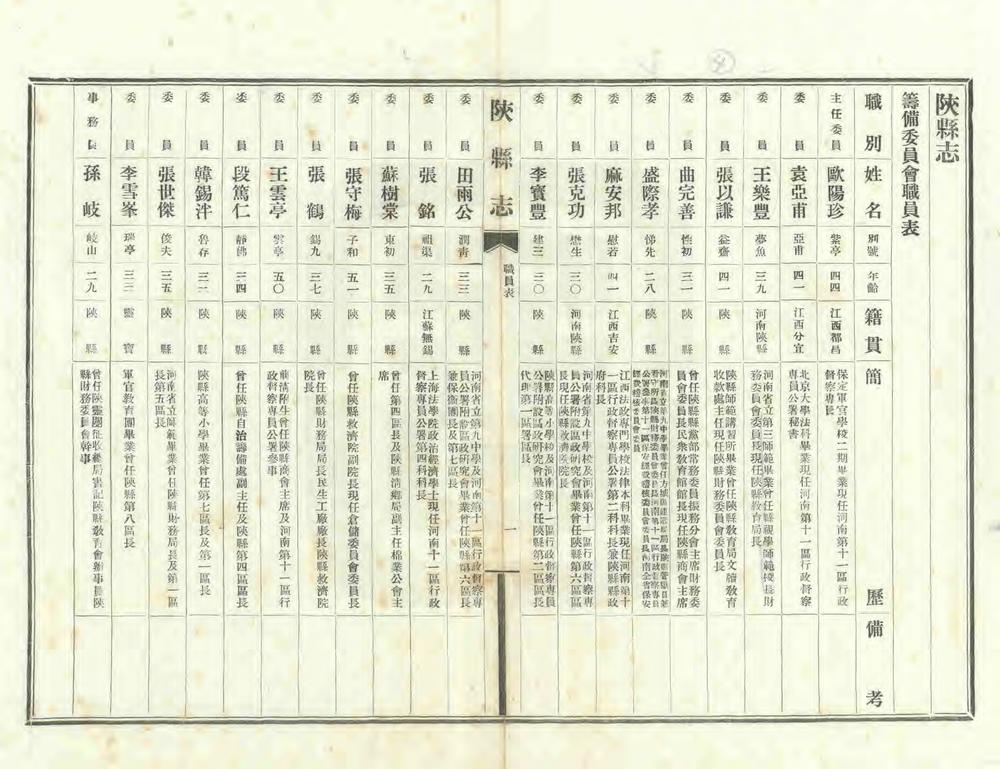 陝縣志
籌備委員會職員表
職別 姓名 別號 年齡 籍貫 簡歷 備考
主任委員 歐陽珍 紫亭 四四 江西都昌 保定軍官學校二期畢業現任河南第十一區行政
督察專員
委員 袁亞甫 亞甫 四一 江西分宜 北京大學法科畢業現任河南第十一區行政督察
專員公署秘書
委員 王樂豐 夢魚 三九 河南陝縣 河南省立第三師範畢業曾任縣視學師範校長財
務委員會委員長現任陝縣教育局長
委員 張以謙 益齋 四一 陝縣 陝縣師範講習所畢業曾任陝縣教育局文牘教育
收款處主任現任陝縣財務委員會委員長
委員 曲完善 性初 三一 陝縣 曾任陝縣縣黨部常務委員振務分會主席財務委
員會委員長民衆教育館館長現任陝縣商會主席
委員 盛際孝 悌先 二八 陝縣
委員 麻安邦 慰若 四一 江西吉安 江西法政專門學校法律本科畢業現任河南第十
一區行政督察專員公署第二科科長兼陝縣縣政
府科長
委員 張克功 懋生 三〇 河南陝縣 河南省第九中學校及河南第十一區行政督察專
員公署附設區政研究會畢業曾任陝縣第六區區
長現任陝縣救濟院院長
委員 李寶豐 建三 三〇 陝縣 陝縣高等小學校及河南第十一區行政督察專員
公署附設區政研究會畢業曾任陝縣第二區區長
代理第一區署區長
陝縣志 職員表 一
委員 田雨公 潤青 三三 陝縣 河南省立第九中學及河南第十一區行政督察專
員公署附設區政研究會畢業曾任陝縣第六區區長
兼保衛團長及第七區長
委員 張銘 祖渠 二九 江蘇無錫 上海法學院政治經濟學士現任河南十一區行政
督察專員公署第四科科長
委員 蘇樹棠 東初 三五 陝縣 曾任第四區長及陝縣清鄉局副主任棉業公會主
席
委員 張守梅 子和 五一 陝縣 曾任陝縣救濟院副院長現任倉儲委員會委員長
委員 張鶴 錫九 三七 陝縣 曾任陝縣財務局局長民生工廠廠長陝縣救濟院
院長
委員 王雲亭 雲亭 五〇 陝縣 前清附生曾任陝縣商會主席及河南第十一區行
政督察專員公署參事
委員 段篤仁 靜佛 三四 陝縣 曾任陝縣自治籌備處副主任及陝縣第四區區長
委員 韓錫泮 魯存 三二 陝縣 陝縣高等小學畢業曾任第七區長及第一區長
委員 張世傑 俊夫 三五 陝縣 河南省立師範畢業曾任陝縣財務局長及第一區
長第五區長
委員 李雪峯 瑞亭 三三 靈寶 軍官教育團畢業曾任陝縣第八區長
事務長 孫岐 岐山 二九 陝縣 曾任陝靈閿征收總局書記陝縣教育會辦事員陝
縣財務委員會幹事